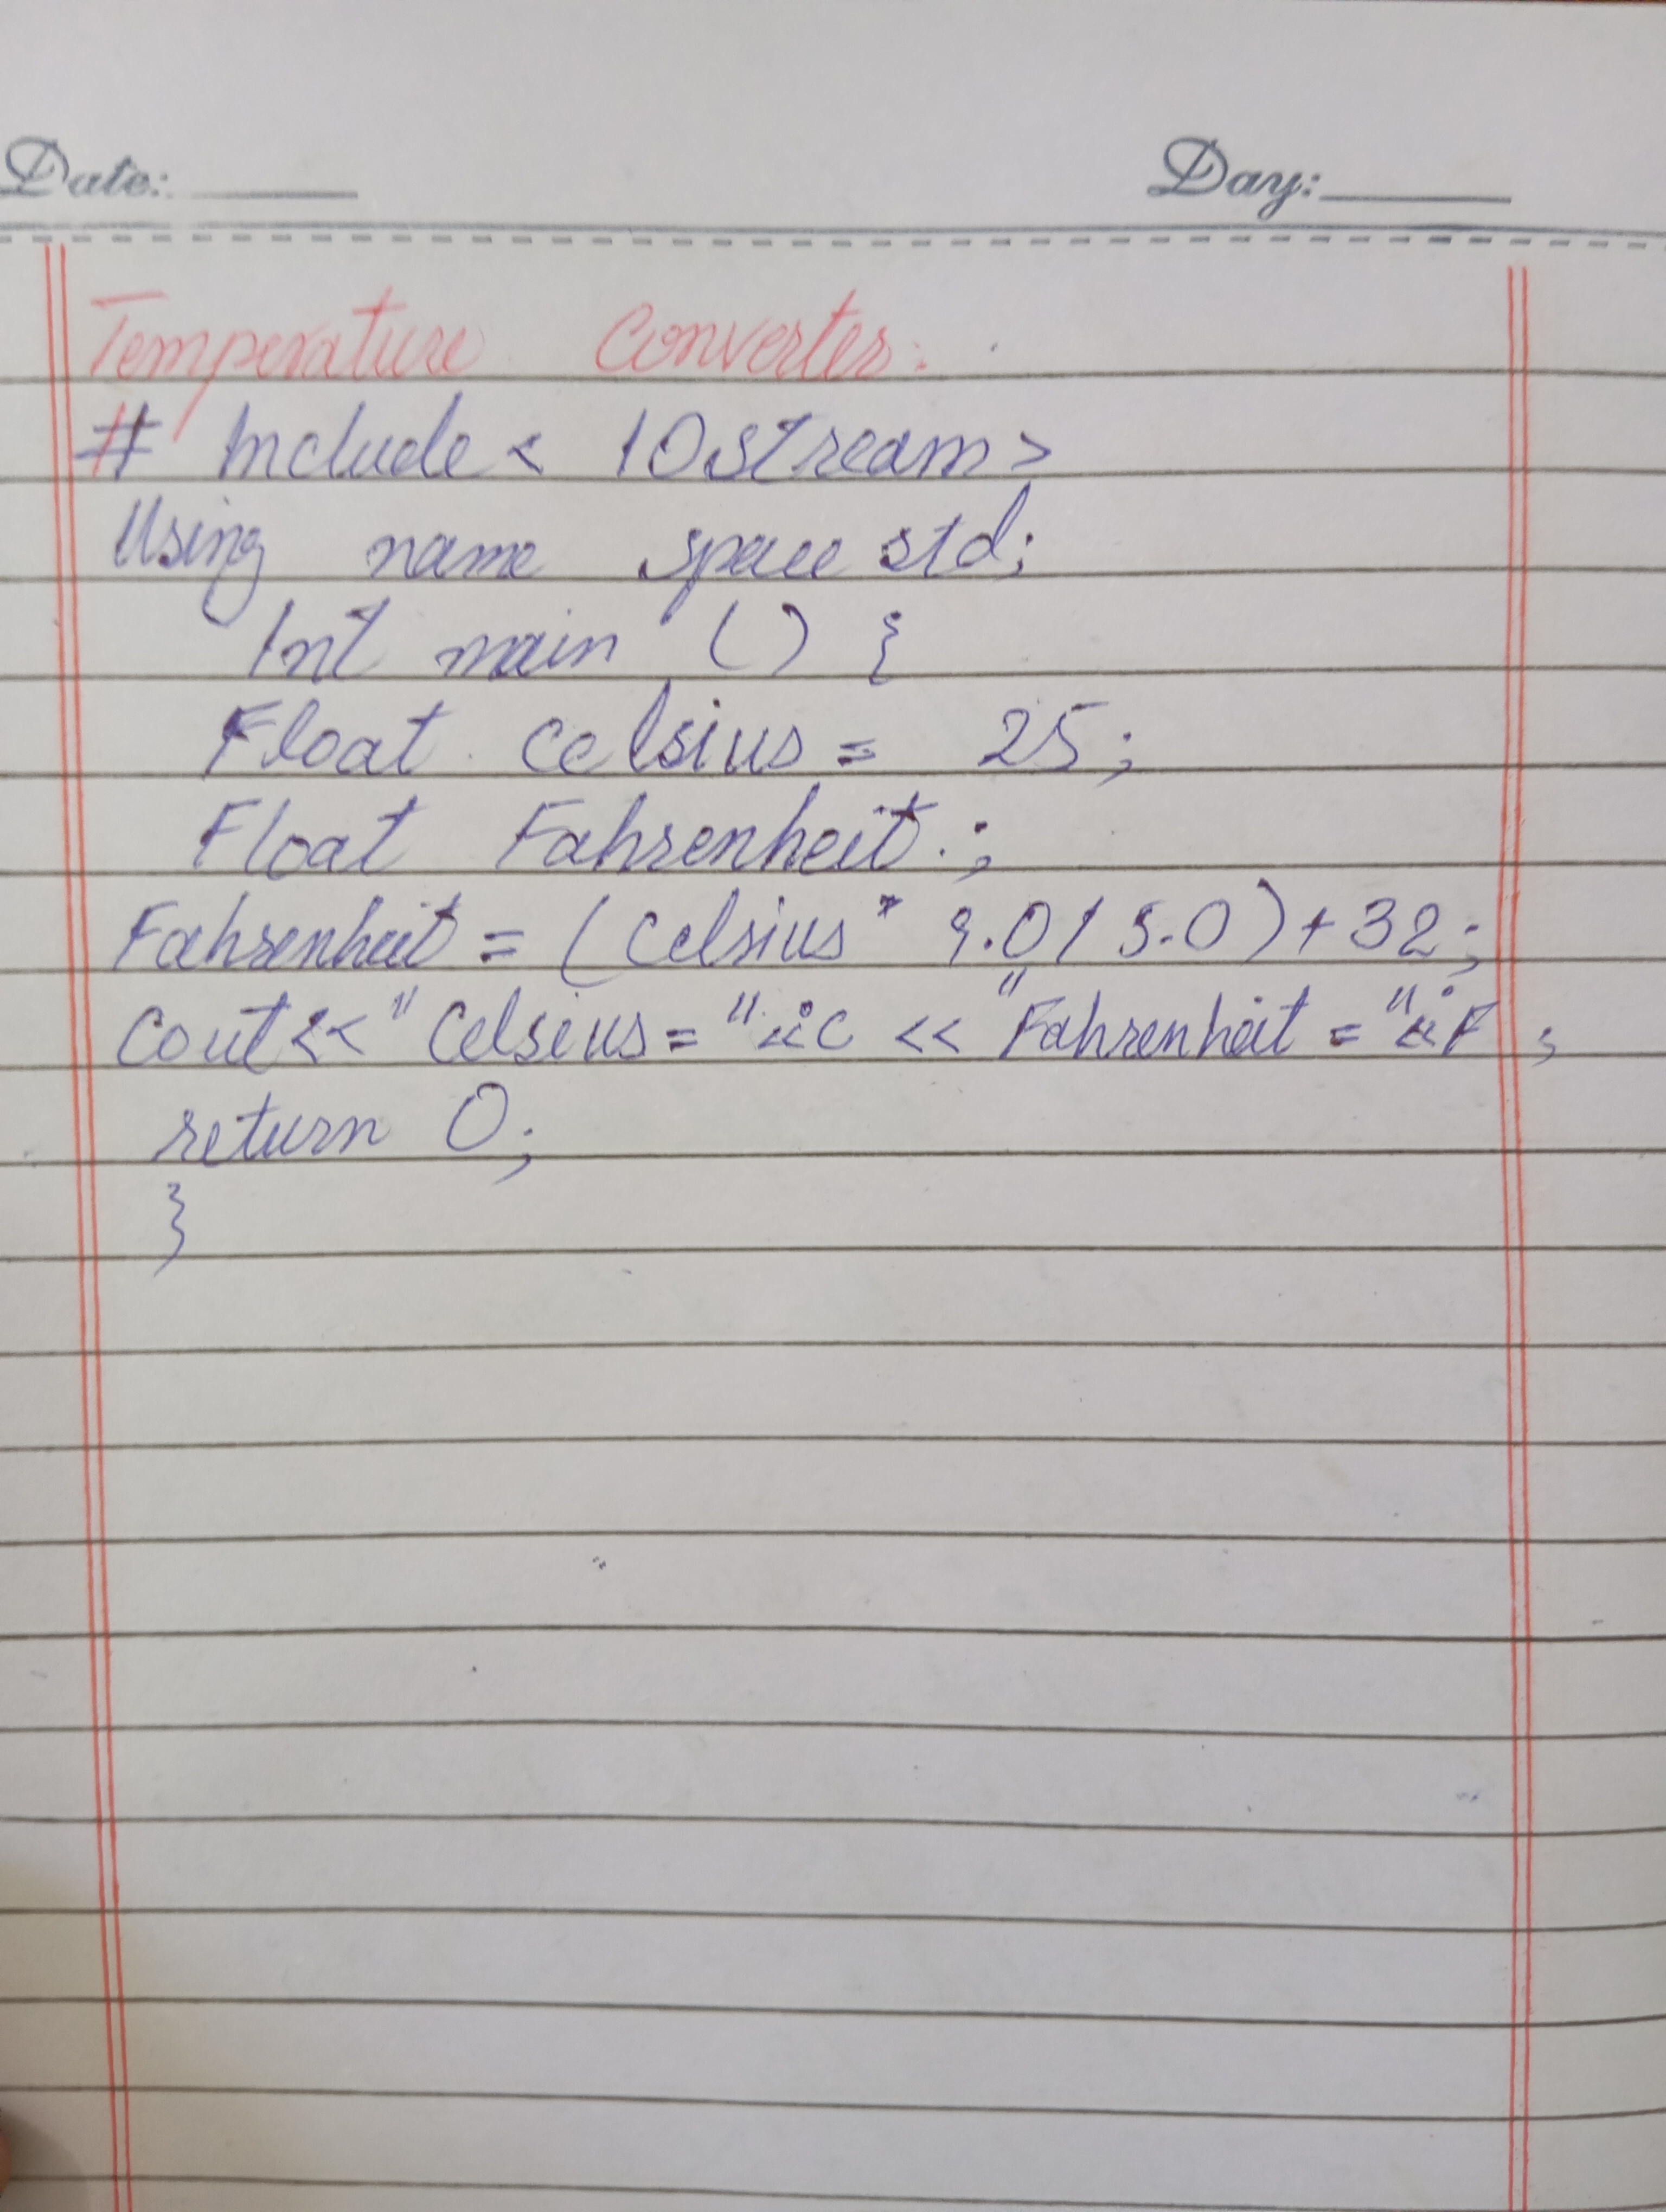 Date:
Day:
Temperature Converter:
# Include < IOstream >
Using name space std;
Int main () {
Float celsius = 25;
Float Fahrenheit.;
Fahrenheit = (Celsius * 9.0 / 5.0) + 32;
Cout << " Celsius = " C << "Fahrenheit = " F ;
return 0;
}